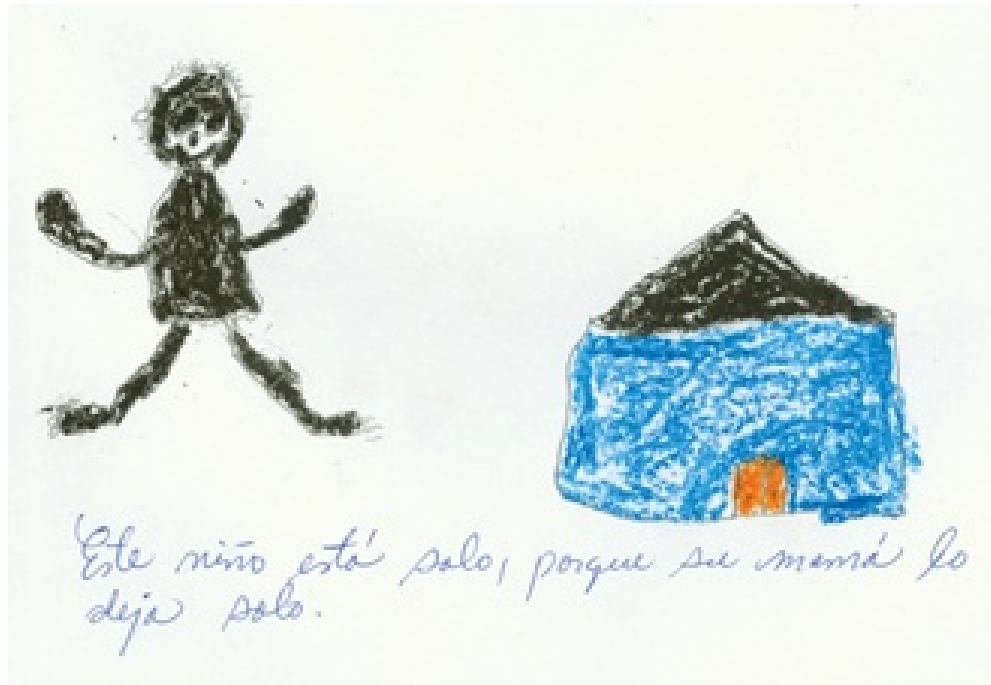 Este niño está solo, porque su mamá lo
deja solo.